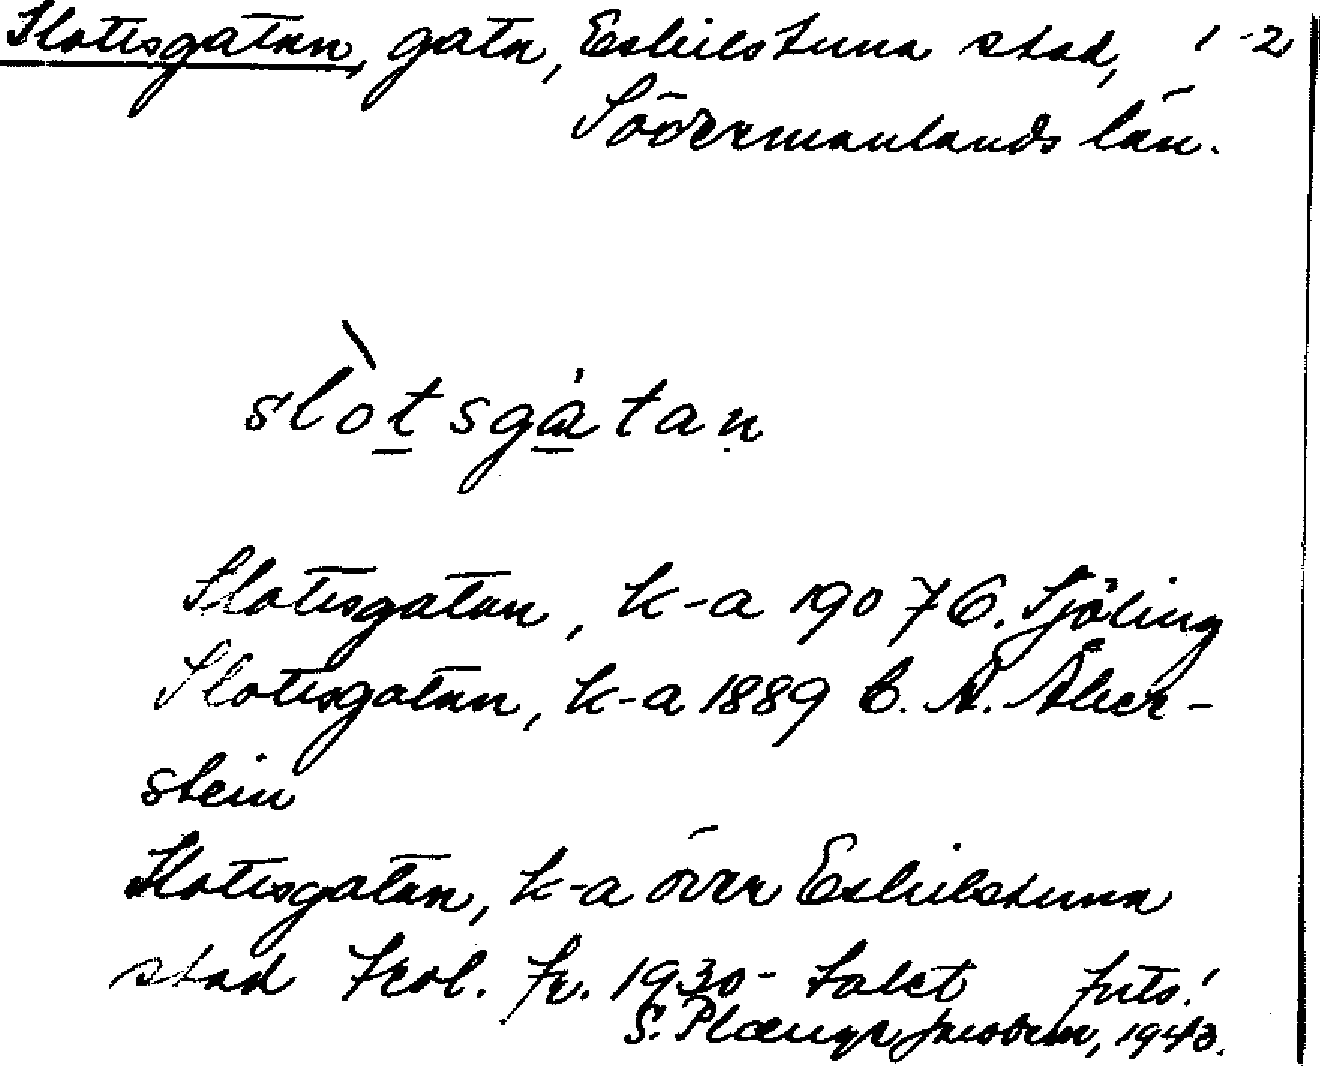 Slottsgatan, gata, Eskilstuna stad, 1-2
Södermanlands län.
slòtsgàtan
Slottsgatan, k-a 1907 G. Sjöling
Slottsgatan, k-a 1889 C. A. Åker-
stein
Slottsgatan, k-a över Eskilstuna
stad trol. fr. 1930-talet forts.!
S. 1943.